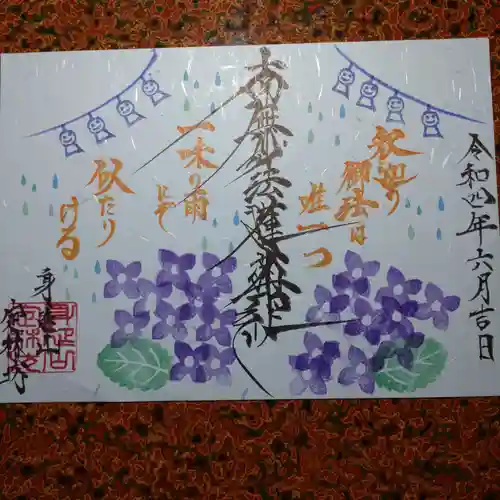 令和四年六月吉日
釈迦の
御法は
唯一つ
南無妙法蓮華経
一味の雨
にぞ
似たり
ける
身延山